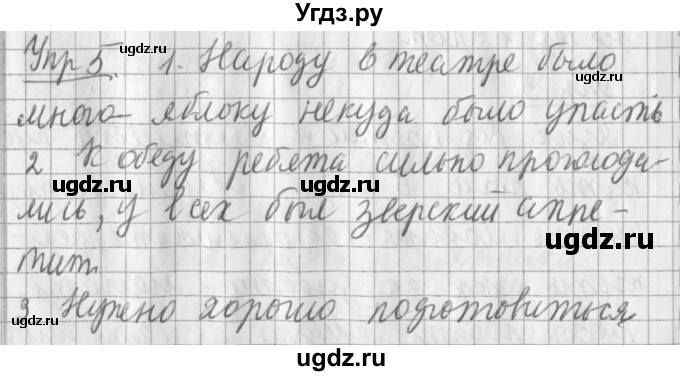 Угдз.ру
Упр 5. 1. Народу в театре было
много – яблоку некуда было упасть
2 К обеду ребята сильно проголода-
лись, у всех был зверский аппе-
тит.
3 Нужно хорошо подготовиться
ugdz.ru
ugdz.ru
ugdz.ru
ugdz.ru
ugdz.ru
ugdz.ru
ugdz.ru
ugdz.ru